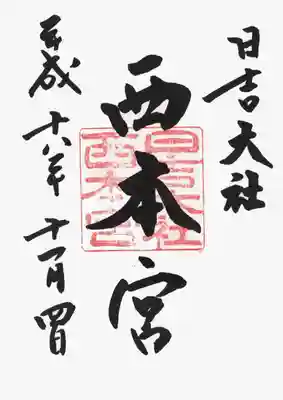 日吉大社
西本宮
平成十八年十一月四日
日吉大社
西本宮